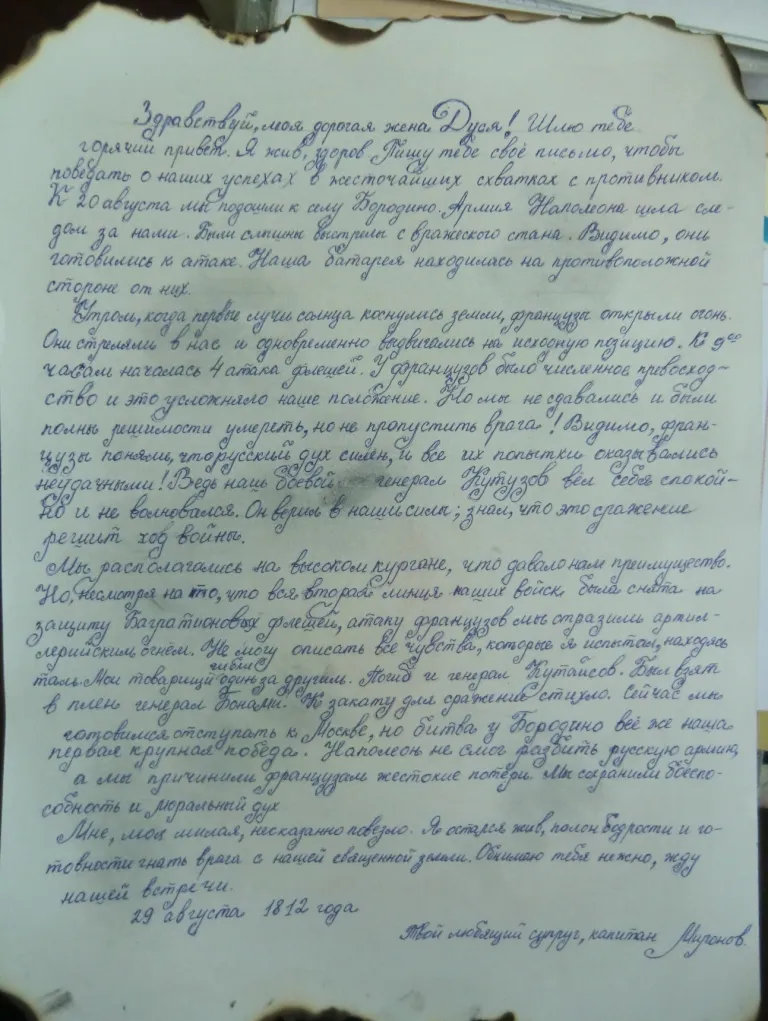 Здравствуй, моя дорогая жена Дуся! Шлю тебе
горячий привет. Я жив, здоров Пишу тебе своё письмо, чтобы
поведать о наших успехах в жесточайших схватках с противником.
К 20 августа мы подошли к селу Бородино. Армия Наполеона шла сле-
дом за нами. Были слышны выстрелы с вражеского стана. Видимо, они
готовились к атаке. Наша батарея находилась на противоположной
стороне от них.
Утром, когда первые лучи солнца коснулись земли, французы открыли огонь.
Они стреляли в нас и одновременно выдвигались на исходную позицию. К 9ти
часам началась 4 атака флешей. У французов было численное превосход-
ство и это усложняло наше положение. Но мы не сдавались и были
полны решимости умереть, но не пропустить врага! Видимо, фран-
цузы поняли, что русский дух силен, и все их попытки оказывались
неудачными! Ведь наш боевой генерал Кутузов вёл себя спокой-
но и не волновался. Он верил в наши силы; знал, что это сражение
решит ход войны.
Мы располагались на высоком кургане, что давало нам преимущество.
Но, несмотря на то, что вся вторая линия наших войск была снята на
защиту Багратионовых флешей, атаку французов мы отразили артил-
лерийским огнём. Не могу описать все чувства, которые я испытал, находясь
там. Мои товарищи гибли один за другим. Погиб и генерал Кутайсов. Был взят
в плен генерал Бонами. К закату дня сражение стихло. Сейчас мы
готовимся отступать к Москве, но битва у Бородино всё же наша
первая крупная победа. Наполеон не смог разбить русскую армию,
а мы причинили французам жестокие потери. Мы сохранили боеспо-
собность и моральный дух
Мне, моя милая, несказанно повезло. Я остался жив, полон бодрости и го-
товности гнать врага с нашей священной земли. Обнимаю тебя нежно, жду
нашей встречи.
29 августа 1812 года
Твой любящий супруг, капитан Миронов.